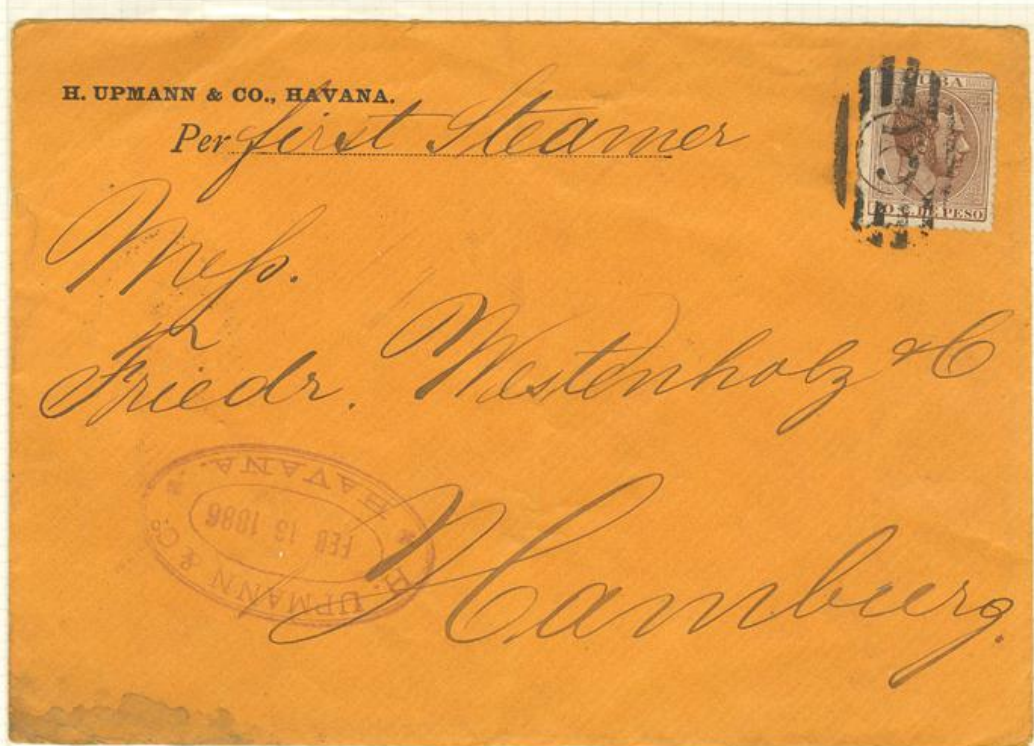 H. UPMANN & CO., HAVANA.
Per first Steamer
CUBA
10 C. DE PESO
Mess.
Friedr. Westenholz & C
Hamburg.
H. UPMANN & Co.
HAVANA.
FEB 13 1886